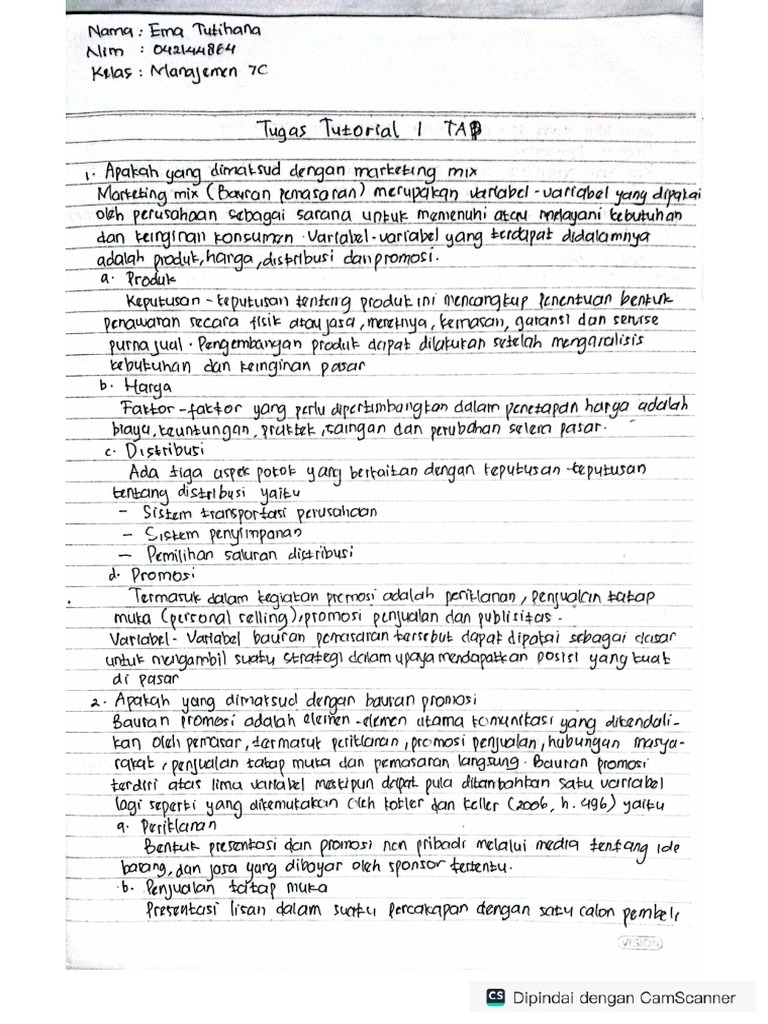 Nama : Ema Tutihana
Nim : 042144864
Kelas : Manajemen 7C
Tugas Tutorial 1 TAP
1. Apakah yang dimaksud dengan marketing mix
Marketing mix (Bauran pemasaran) merupakan variabel-variabel yang dipakai
oleh perusahaan sebagai sarana untuk memenuhi atau melayani kebutuhan
dan keinginan konsumen. Variabel-variabel yang terdapat didalamnya
adalah produk, harga, distribusi dan promosi.
a. Produk
Keputusan-keputusan tentang produk ini mencangkup penentuan bentuk
penawaran secara fisik atau jasa, mereknya, kemasan, garansi dan servise
purna jual. Pengembangan produk dapat dilakukan setelah menganalisis
kebutuhan dan keinginan pasar
b. Harga
Faktor-faktor yang perlu dipertimbangkan dalam penetapan harga adalah
biaya, keuntungan, praktek, saingan dan perubahan selera pasar.
c. Distribusi
Ada tiga aspek pokok yang berkaitan dengan keputusan-keputusan
tentang distribusi yaitu
- Sistem transportasi perusahaan
- Sistem penyimpanan
- Pemilihan saluran distribusi
d. Promosi
Termasuk dalam kegiatan promosi adalah periklanan, penjualan tatap
muka (personal selling), promosi penjualan dan publisitas.
Variabel-Variabel bauran pemasaran tersebut dapat dipakai sebagai dasar
untuk mengambil suatu strategi dalam upaya mendapatkan posisi yang kuat
di pasar
2. Apakah yang dimaksud dengan bauran promosi
Bauran promosi adalah elemen-elemen utama komunikasi yang dikendali-
kan oleh pemasar, termasuk periklanan, promosi penjualan, hubungan masya-
rakat, penjualan tatap muka dan pemasaran langsung. Bauran promosi
terdiri atas lima variabel meskipun dapat pula ditambahkan satu variabel
lagi seperti yang dikemukakan oleh kotler dan keller (2006, h. 496) yaitu
a. Periklanan
Bentuk presentasi dan promosi non pribadi melalui media tentang ide
barang, dan jasa yang dibayar oleh sponsor tertentu.
b. Penjualan tatap muka
Presentasi lisan dalam suatu percakapan dengan satu calon pembeli
VISION
CS Dipindai dengan CamScanner